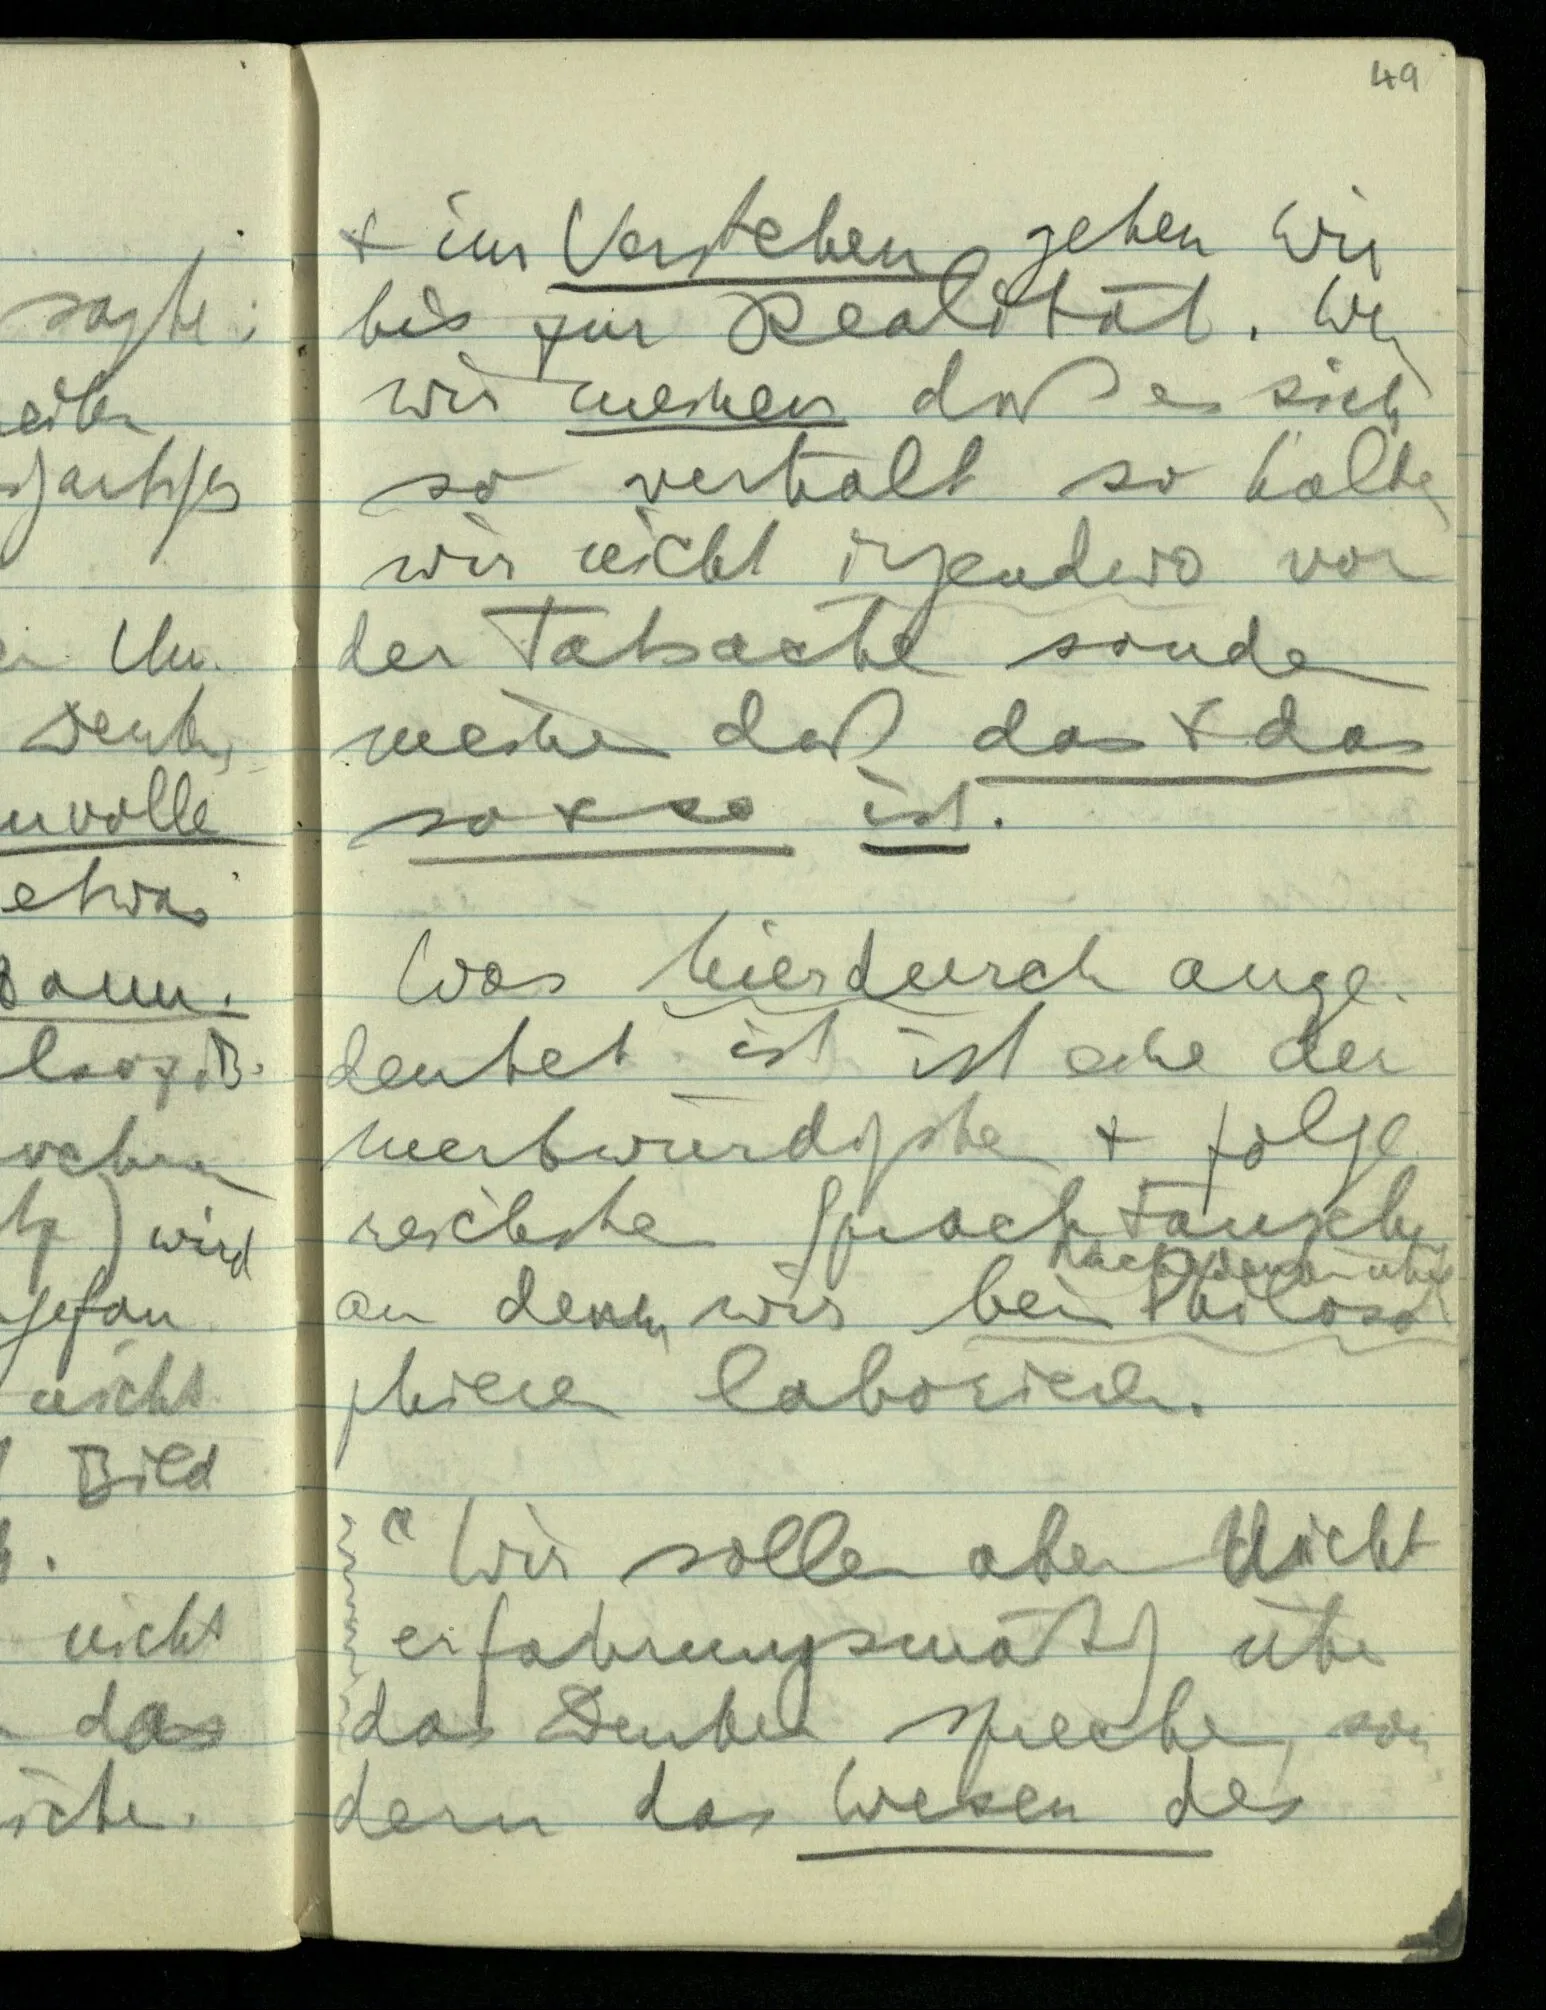 sagte:
eiben
Um.
nvolle
etwas
wird
nicht
Bild
nicht
das
49
+ im Verstehen gehen wir
bis zur Realität. Wenn
wir meinen daß es sich
so verhält so halten
wir nicht irgendwo vor
der Tatsache sondern
meinen daß das + das
so + so ist.
Was hierdurch ange-
deutet ist ist eine der
merkwürdigsten + folge
reichsten Sprachtäuschungen
nachdenken über
an denen wir bei Philoso
phieren laborieren.
"Wir sollen aber nicht
erfahrungsmäßig über
das Denken sprechen, son
dern das Wesen des